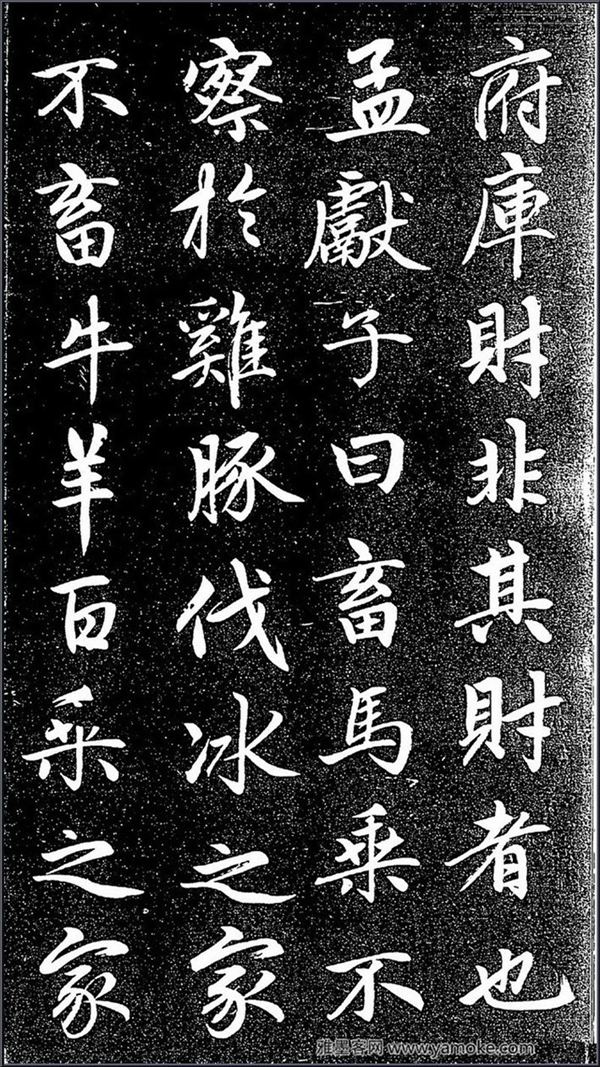 府庫財非其財者也
孟獻子曰畜馬乘不
察於雞豚伐冰之家
不畜牛羊百乘之家
雅墨客网 www.yamoke.com